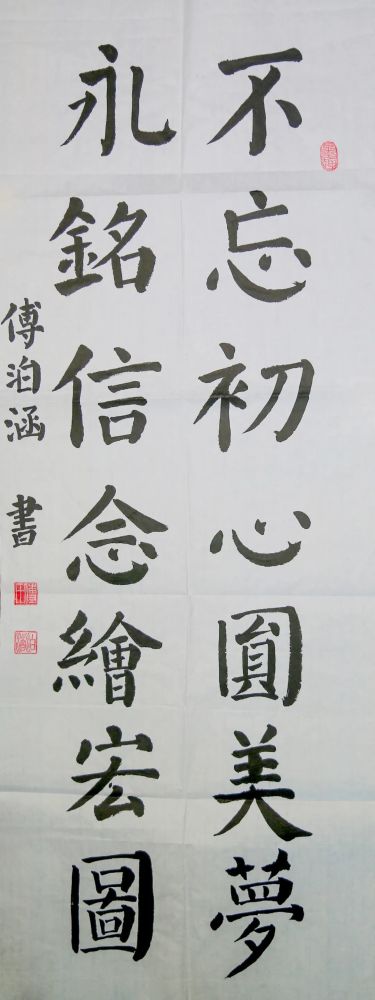 不忘初心圓美夢
永銘信念繪宏圖
傅泊涵 書